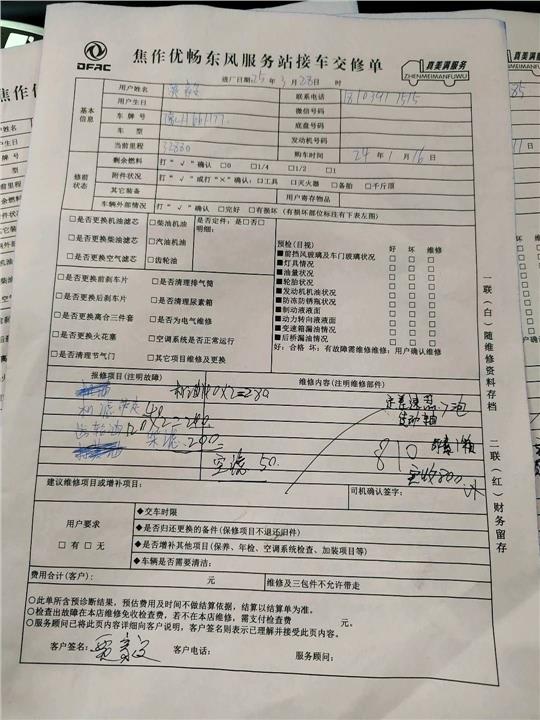 DFAC
焦作优畅东风服务站接车交修单
真美满服务
ZHENMEIMANFUWU
进厂日期：25 年 3 月 28 日 时
基本信息
用户姓名
联系电话
用户生日
微信号码
车牌号
底盘号码
车型
发动机号
当前里程 32880
购车时间 24 年 1 月 16 日
修前状态
剩余燃料 打“√”确认 □0 □1/4 □1/2 □1
附件状况 打“√”或打“×”确认：□工具 □灭火器 □备胎 □千斤顶
其它装备 用户寄存物品
车辆外部情况 打“√”确认 □完好 □有损坏（有损坏部位标注有下表左图）
□是否更换机油滤芯 □柴油机油 是否定件：是□否□
□是否更换柴油滤芯 □汽油机油 明细：
□是否更换空气滤芯 □齿轮油
□是否更换前刹车片 □是否清理排气筒
□是否更换后刹车片 □是否清理尿素箱
□是否更换离合三件套 □是否为电气维修
□是否更换火花塞 □空调系统是否正常运行
□是否清理节气门 □其它项目维修及更换
预检（目视） 好 坏 维修
■前挡风玻璃及车门玻璃状况 □ □ □
■灯具情况 □ □ □
■油量状况 □ □ □
■轮胎状况 □ □ □
■发动机机油状况 □ □ □
■防冻防锈瓶状况 □ □ □
■制动液液面 □ □ □
■动力转向液液面 □ □ □
■变速箱漏油情况 □ □ □
■后桥漏油情况 □ □ □
好：合格 坏：有故障需维修维修：用户确认维修
报修项目（注明故障） 维修内容（注明维修部件）
机油140X2=280
机滤 40
齿轮油120X2=240
柴滤 200
空滤 50
810
实收800
建议维修项目或增补项目： 司机确认签字：
用户要求
□有 □无
◆交车时限
◆是否归还更换的备件（保修项目不退还旧件）
◆是否增补其他项目（保养、年检、空调系统检查、加装项目等）
◆车辆是否需要清洁：
费用合计（客户）： 元 维修及三包件不允许带走
○此单所含预诊断结果，预估费用及时间不做结算依据，结算以结算单为准。
○检查出故障在本店维修免收检查费，若不在本店维修，需支付检查费 元。
○服务顾问已将此页内容详细向客户说明，客户签名则表示已理解并接受此页内容。
客户签名： 客户电话： 服务顾问：
一联（白）随维修资料存档
二联（红）财务留存